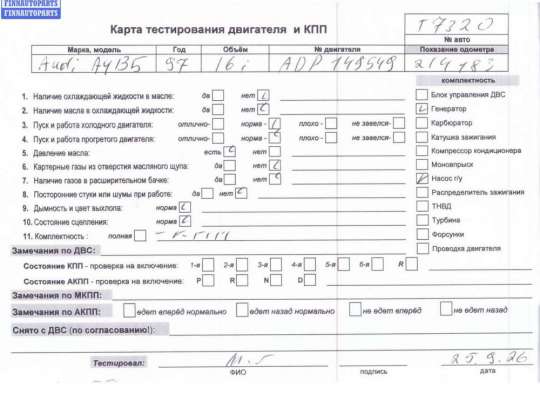 FINNAUTOPARTS
FINNAUTOPARTS
Карта тестирования двигателя и КПП
T7320
№ авто
Марка, модель Год Объём № двигателя Показание одометра
Audi A4B5 97 1.6 i ADP 149549 214783
комплектность
1. Наличие охлаждающей жидкости в масле: да нет
2. Наличие масла в охлаждающей жидкости: да нет
3. Пуск и работа холодного двигателя: отлично- норма - плохо - не завелся-
4. Пуск и работа прогретого двигателя: отлично- норма - плохо - не завелся-
5. Давление масла: есть нет
6. Картерные газы из отверстия масляного щупа: да нет
7. Наличие газов в расширительном бачке: да нет
8. Посторонние стуки или шумы при работе: да нет
9. Дымность и цвет выхлопа: норма
10. Состояние сцепления: норма
11. Комплектность : полная
Блок управления ДВС
Генератор
Карбюратор
Катушка зажигания
Компрессор кондиционера
Моновпрыск
Насос г/у
Распределитель зажигания
ТНВД
Турбина
Форсунки
Проводка двигателя
Замечания по ДВС:
Состояние КПП - проверка на включение: 1-я 2-я 3-я 4-я 5-я 6-я R
Состояние АКПП - проверка на включение: P R N D
Замечания по МКПП:
Замечания по АКПП: едет вперёд нормально едет назад нормально не едет вперёд не едет назад
Снято с ДВС (по согласованию!):
Тестировал: 25.9.26
ФИО подпись дата